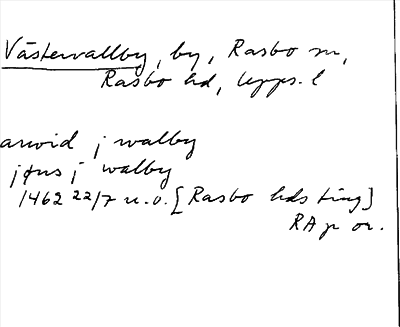 Västervallby, by, Rasbo sn,
Rasbo hd, Upps. l
arwid j walby
jfus j walby
1462 22/7 u.o. [Rasbo hds ting]
RA p or.